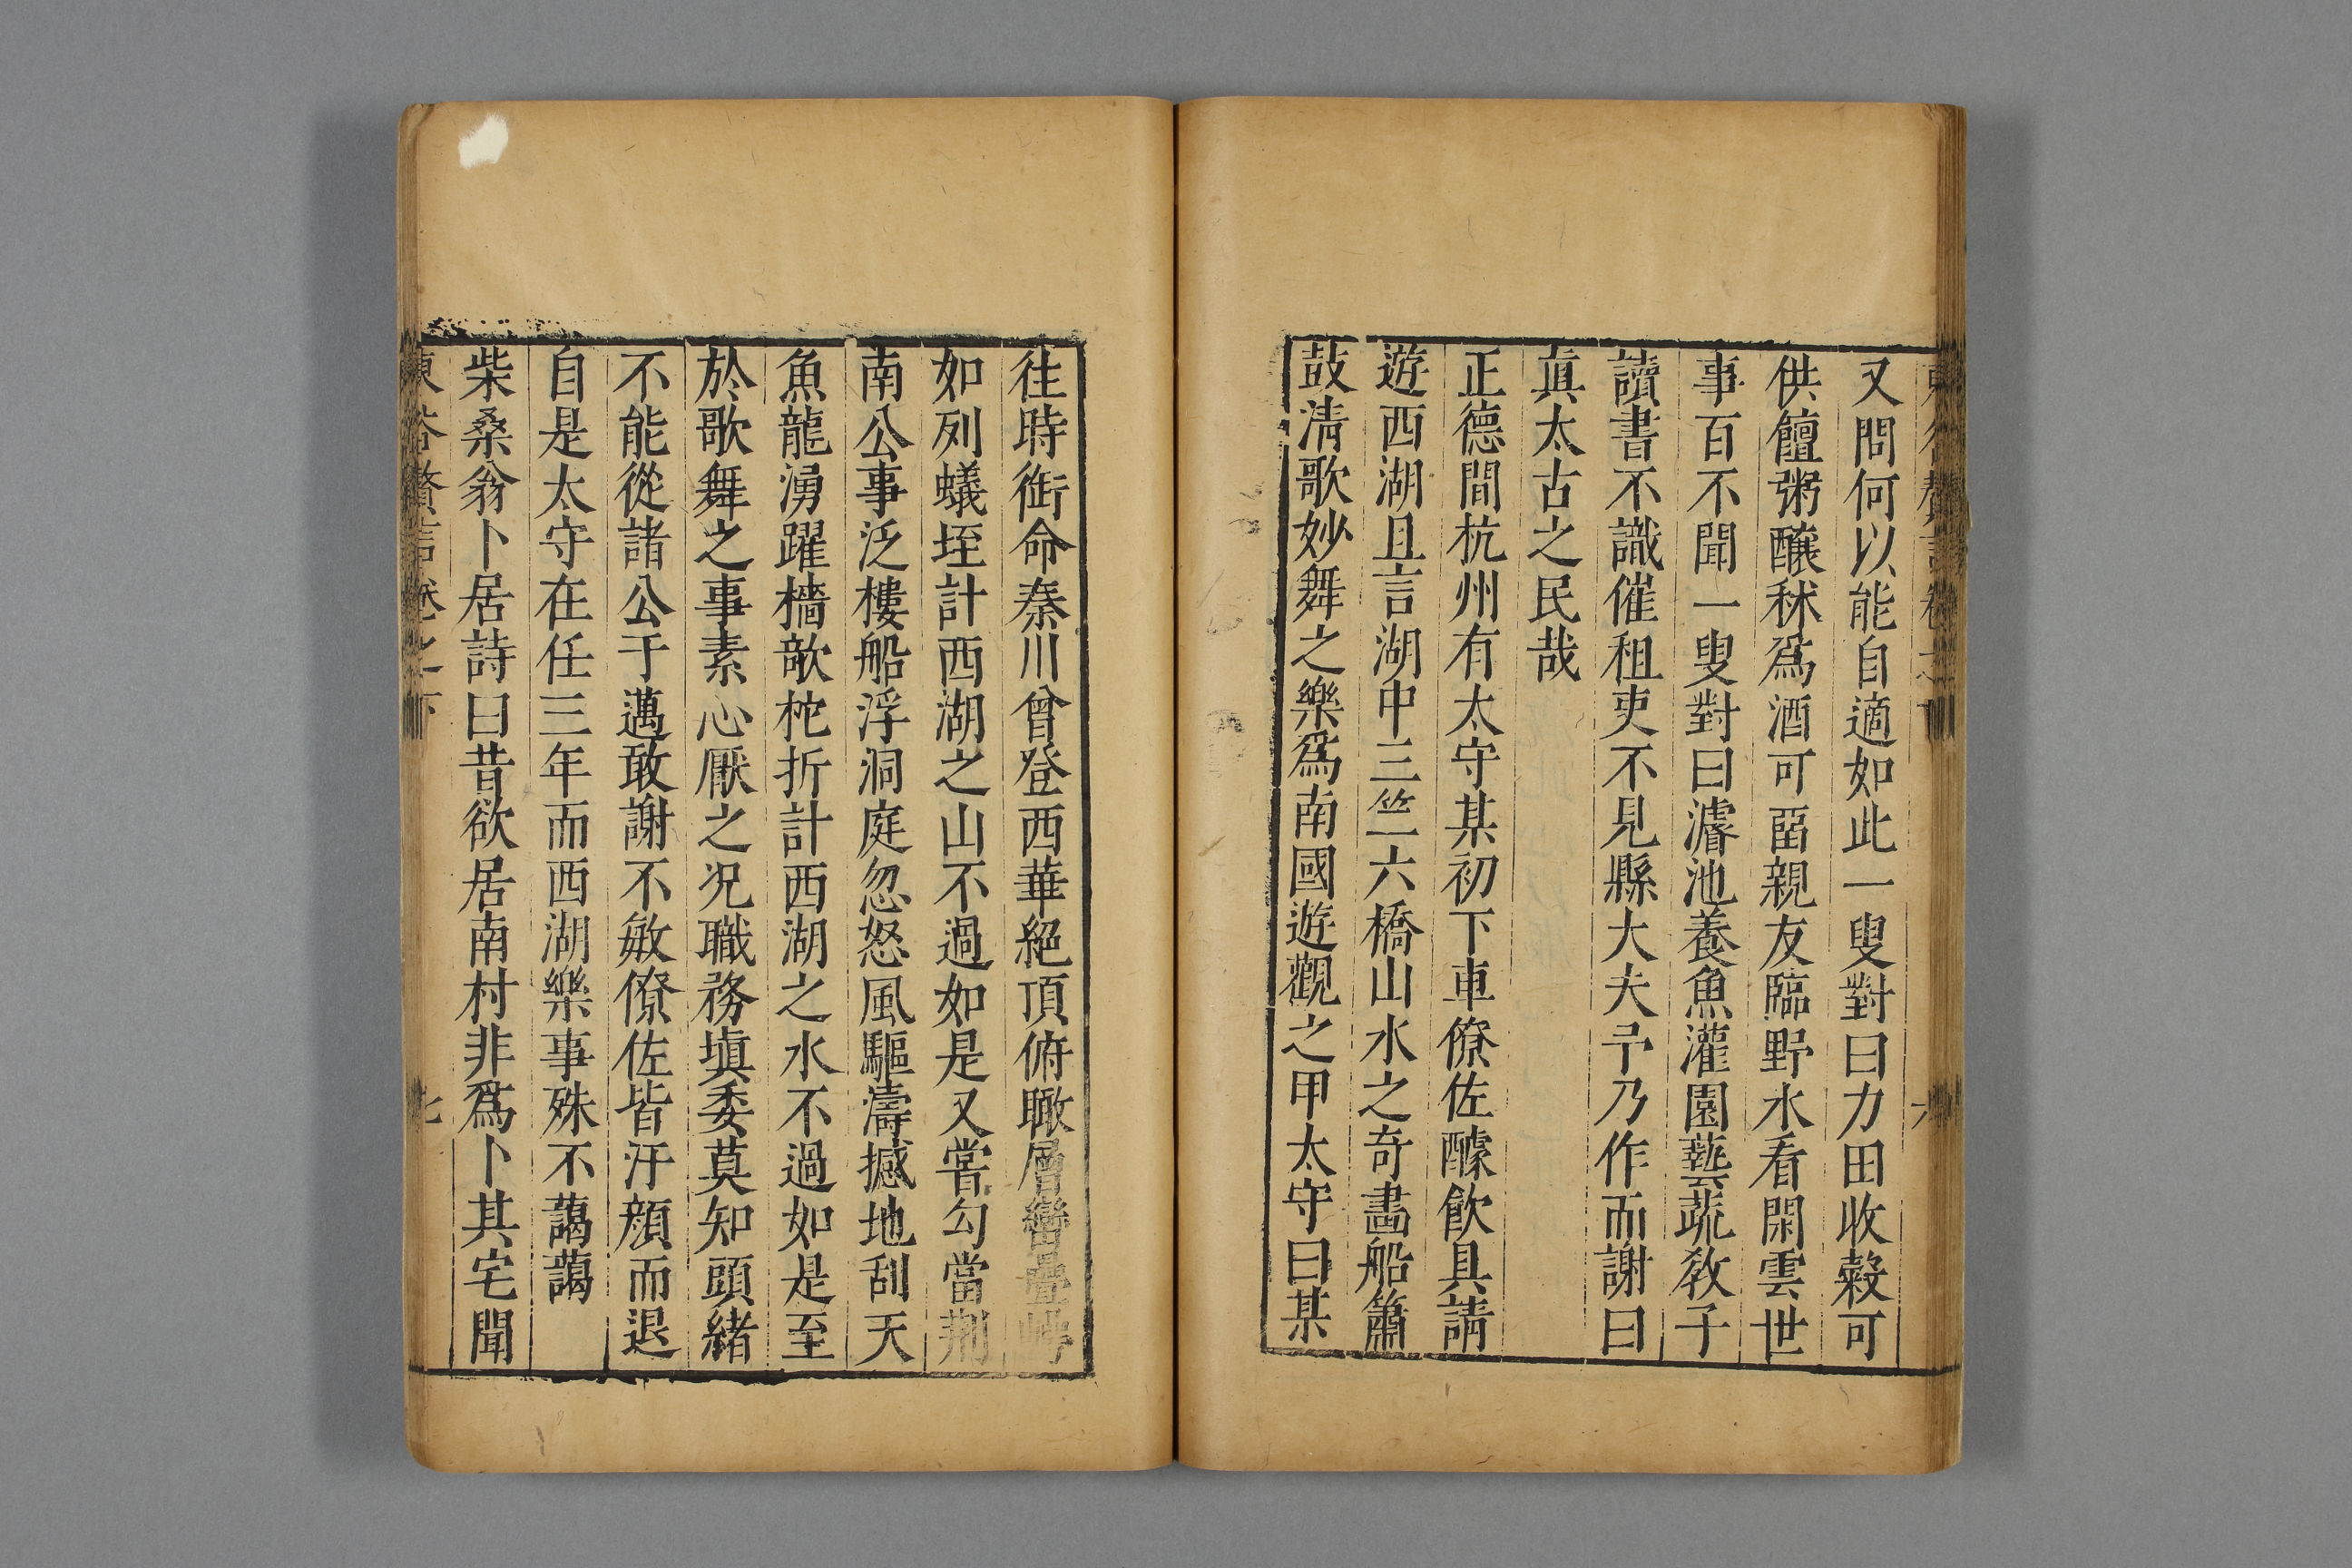 又問何以能自適如此一叟對曰力田收穀可
供饘粥釀秫爲酒可畱親友臨野水看閑雲世
事百不聞一叟對曰濬池養魚灌園藝蔬敎子
讀書不識催租吏不見縣大夫予乃作而謝曰
眞太古之民哉
正德間杭州有太守某初下車僚佐醵飲具請
遊西湖且言湖中三竺六橋山水之奇畵船簫
鼓淸歌妙舞之樂爲南國遊觀之甲太守曰某
往時銜命秦川曾登西華絕頂俯瞰層巒疊嶂
如列蟻垤計西湖之山不過如是又嘗勾當荆
南公事泛樓船浮洞庭忽怒風驅濤撼地刮天
魚龍湧躍檣欹柁折計西湖之水不過如是至
於歌舞之事素心厭之况職務塡委莫知頭緒
不能從諸公于邁敢謝不敏僚佐皆汗顏而退
自是太守在任三年而西湖樂事殊不藹藹
柴桑翁卜居詩曰昔欲居南村非爲卜其宅聞
東谷贅言卷之下
七